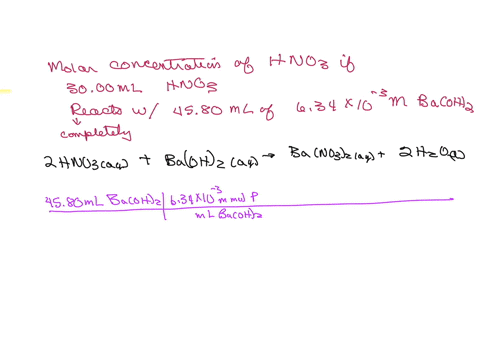 Molar concentration of HNO3 if
30.00 mL HNO3
Reacts w/ 45.80 mL of 6.34 × 10⁻³ M Ba(OH)2
↓
completely
2HNO3(aq) + Ba(OH)2 (aq) → Ba(NO3)2(aq) + 2H2O(l)
45.80 mL Ba(OH)2 | 6.34×10⁻³ m mol
mL Ba(OH)2